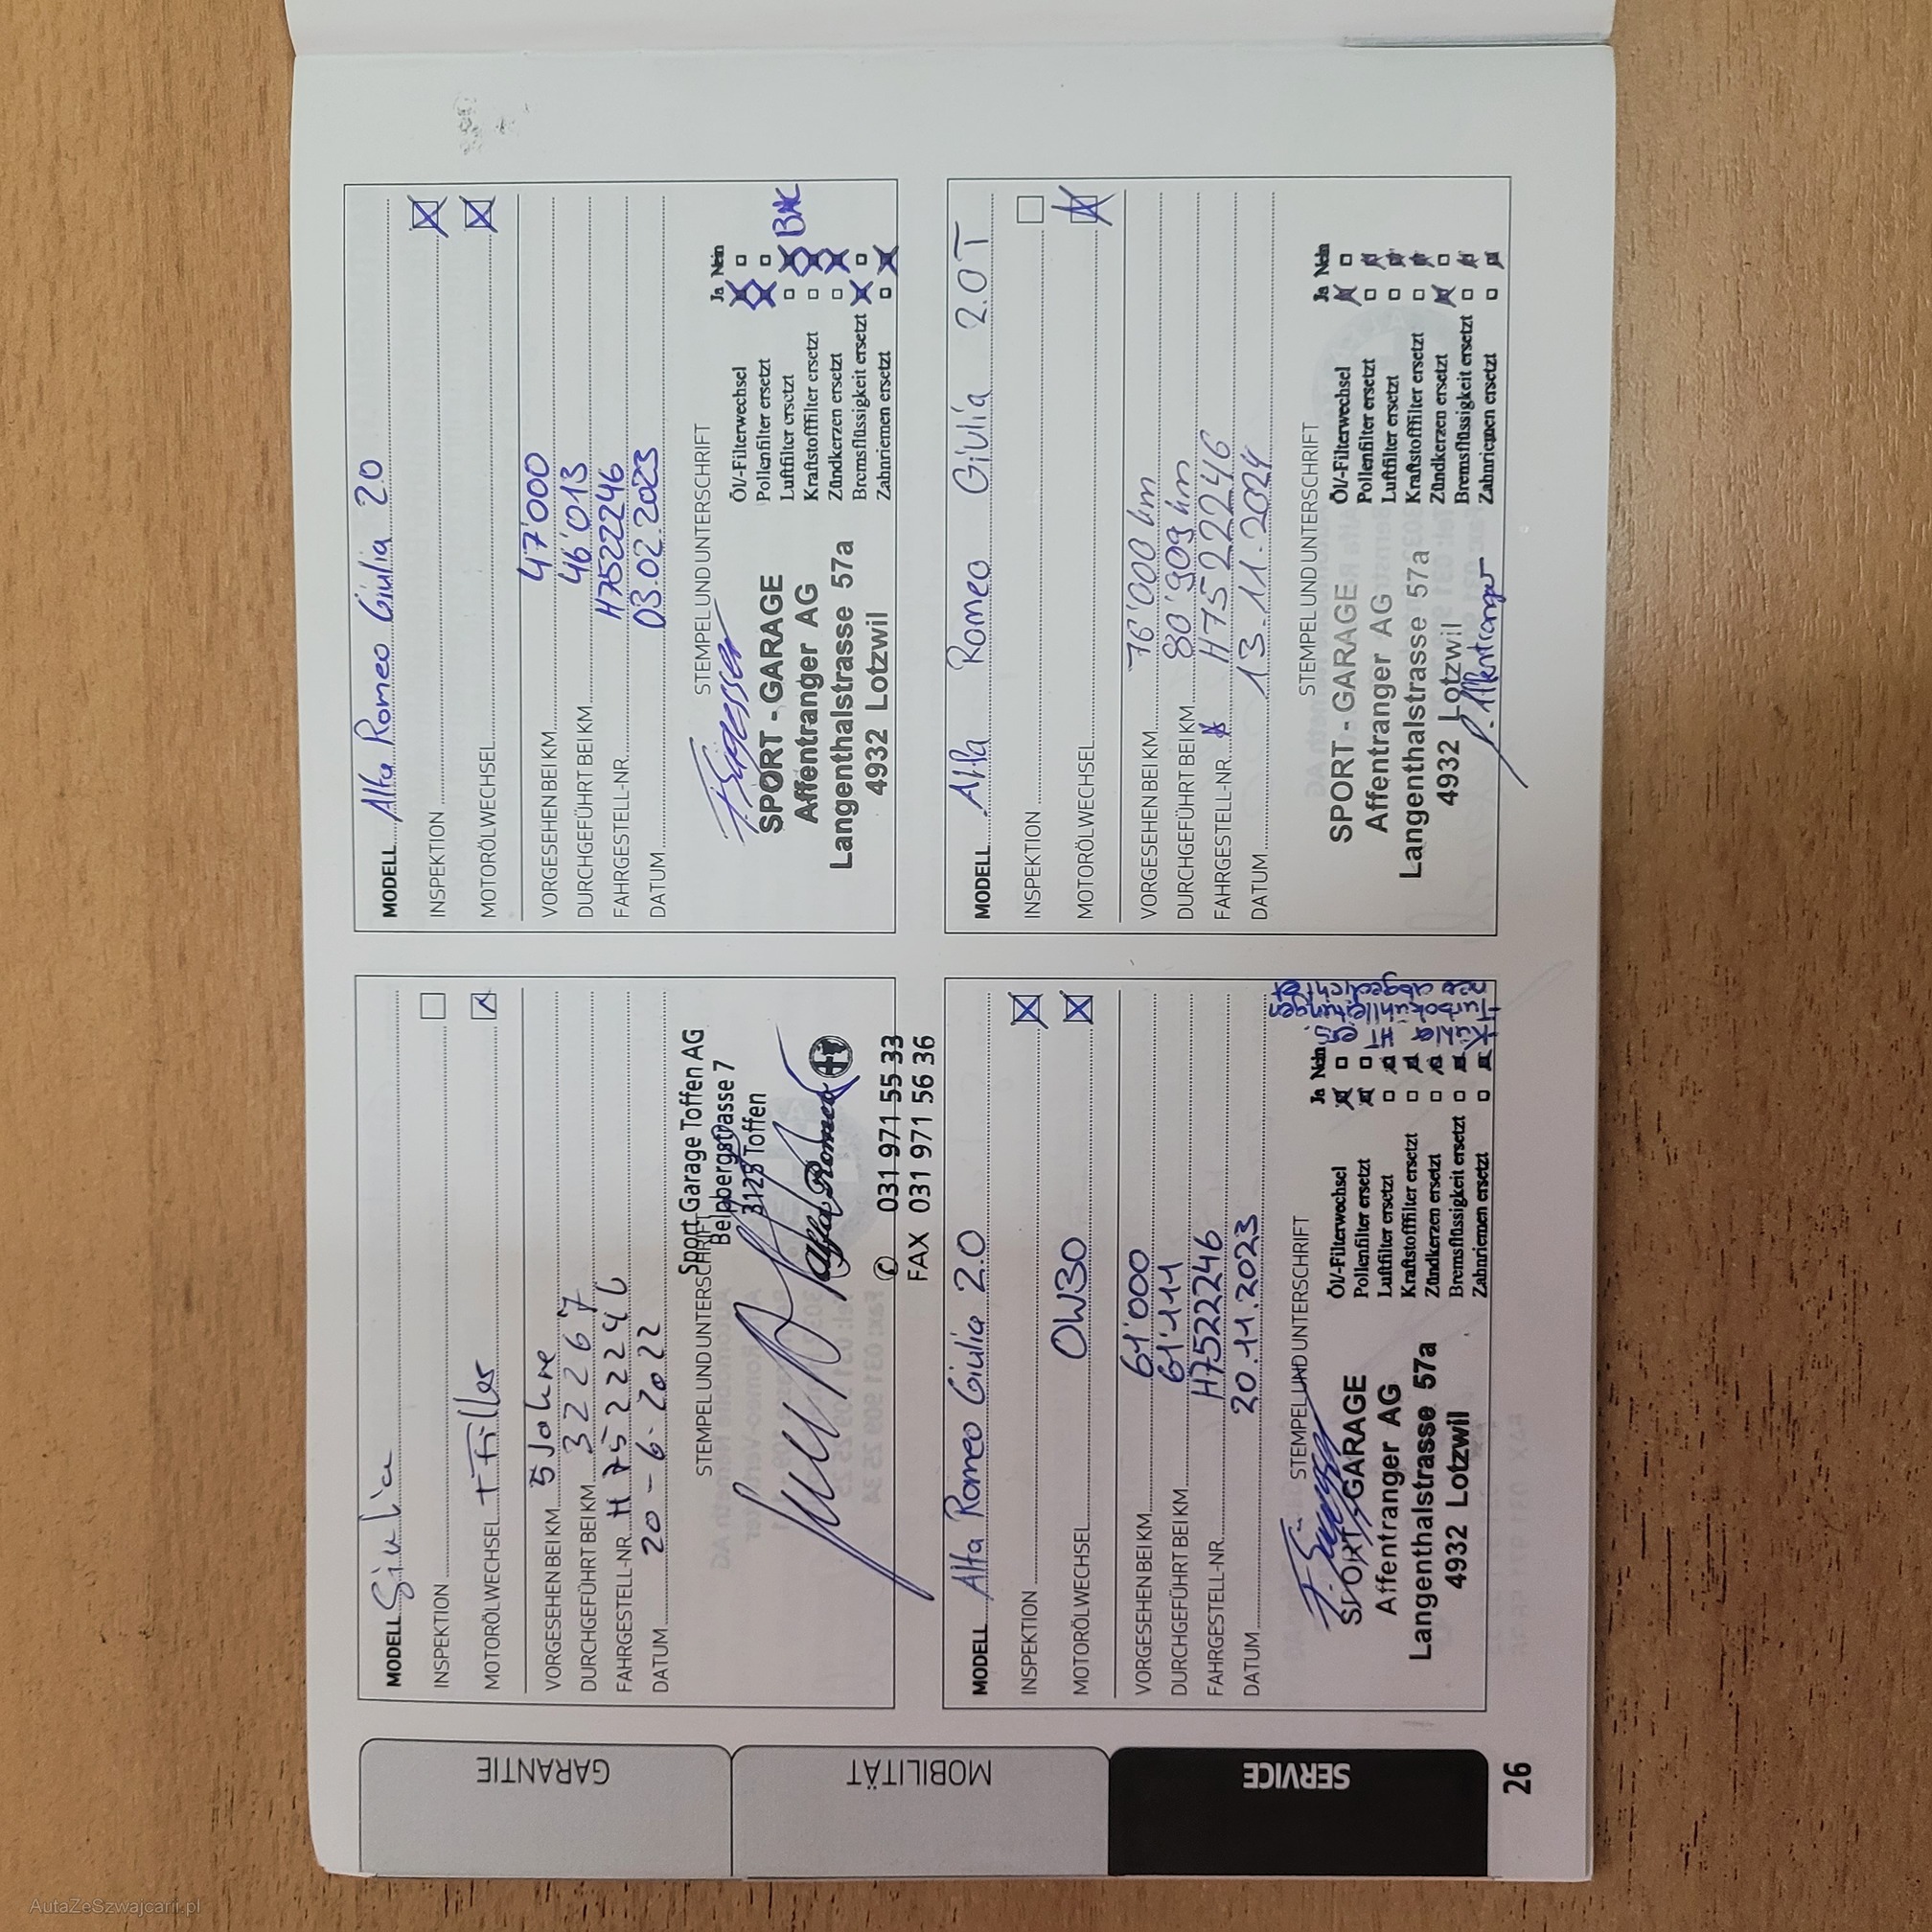 MODELL Giulia
INSPEKTION
MOTORÖLWECHSEL + Filter
VORGESEHEN BEI KM 5 Jahre
DURCHGEFÜHRT BEI KM 32267
FAHRGESTELL-NR. H7522246
DATUM 20-6-2022
STEMPEL UND UNTERSCHRIFT
Sport Garage Toffen AG
Belpbergstrasse 7
3125 Toffen
Alfa Romeo
✆ 031 971 55 33
FAX 031 971 56 36
MODELL Alfa Romeo Giulia 2.0
INSPEKTION
MOTORÖLWECHSEL
VORGESEHEN BEI KM 47'000
DURCHGEFÜHRT BEI KM 46'013
FAHRGESTELL-NR. H7522246
DATUM 03.02.2023
STEMPEL UND UNTERSCHRIFT
SPORT - GARAGE
Affentranger AG
Langenthalstrasse 57a
4932 Lotzwil
Ja Nein
Öl/-Filterwechsel
Pollenfilter ersetzt
Luftfilter ersetzt
Kraftstofffilter ersetzt
Zündkerzen ersetzt
Bremsflüssigkeit ersetzt
Zahnriemen ersetzt
MODELL Alfa Romeo Giulia 2.0
INSPEKTION
MOTORÖLWECHSEL 0W30
VORGESEHEN BEI KM 61'000
DURCHGEFÜHRT BEI KM 61'111
FAHRGESTELL-NR. H7522246
DATUM 20.11.2023
STEMPEL UND UNTERSCHRIFT
SPORT - GARAGE
Affentranger AG
Langenthalstrasse 57a
4932 Lotzwil
Ja Nein
Öl/-Filterwechsel
Pollenfilter ersetzt
Luftfilter ersetzt
Kraftstofffilter ersetzt
Zündkerzen ersetzt
Bremsflüssigkeit ersetzt
Zahnriemen ersetzt
Kühler HT ers.
Turbokühlleitungen
neu abgedichtet
MODELL Alfa Romeo Giulia 2.0T
INSPEKTION
MOTORÖLWECHSEL
VORGESEHEN BEI KM 76'000 km
DURCHGEFÜHRT BEI KM 80'909 km
FAHRGESTELL-NR. H7522246
DATUM 13.11.2024
STEMPEL UND UNTERSCHRIFT
SPORT - GARAGE
Affentranger AG
Langenthalstrasse 57a
4932 Lotzwil
Ja Nein
Öl/-Filterwechsel
Pollenfilter ersetzt
Luftfilter ersetzt
Kraftstofffilter ersetzt
Zündkerzen ersetzt
Bremsflüssigkeit ersetzt
Zahnriemen ersetzt
GARANTIE
MOBILITÄT
SERVICE
26
AutaZeSzwajcarii.pl